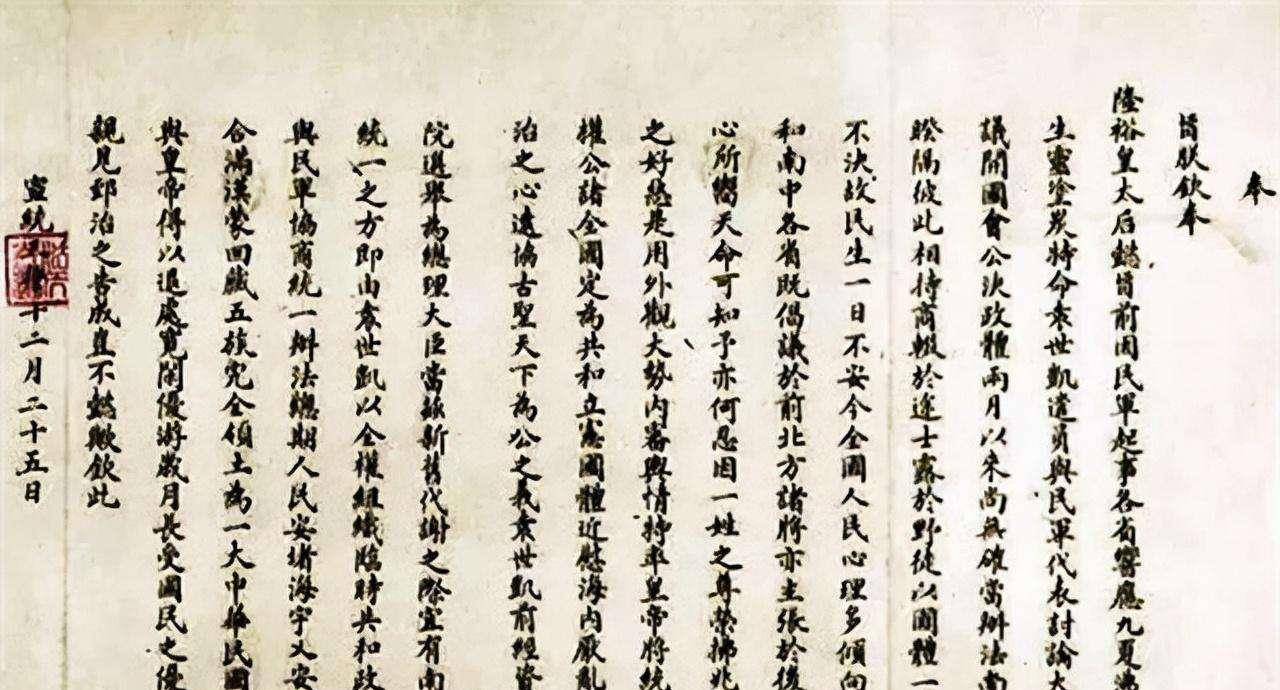 奉
旨朕欽奉
隆裕皇太后懿旨前因民軍起事各省響應九夏沸
生靈塗炭特命袁世凱遣員與民軍代表討論大
議開國會公決政體兩月以來尚無確當辦法南
暌隔彼此相持商輟於途士露於野徒以國體一
不決故民生一日不安今全國人民心理多傾向
和南中各省既倡議於前北方諸將亦主張於後
心所嚮天命可知予亦何忍因一姓之尊榮拂兆
之好惡是用外觀大勢內審輿情特率皇帝將統
權公諸全國定為共和立憲國體近慰海內厭亂
治之心遠協古聖天下為公之義袁世凱前經資
院選舉為總理大臣當茲新舊代謝之際宜有南
統一之方即由袁世凱以全權組織臨時共和政
與民軍協商統一辦法總期人民安堵海宇乂安
合滿漢蒙回藏五族完全領土為一大中華民國
與皇帝得以退處寬閒優游歲月長受國民之優
親見郅治之告成豈不懿歟欽此
宣統十二月二十五日